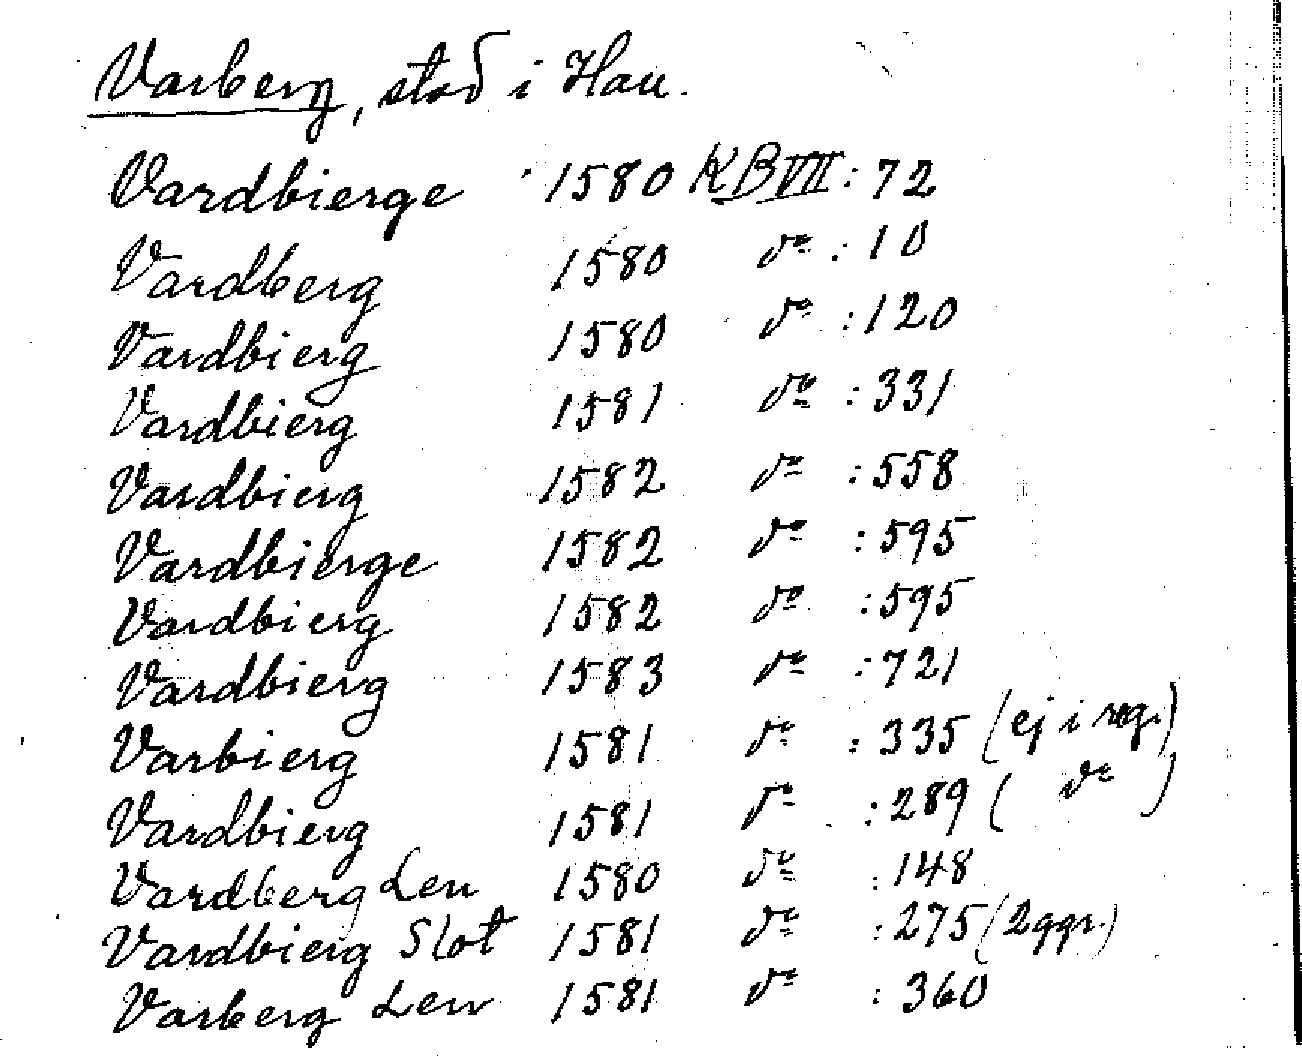 Varberg, stad i Hall.
Vardbierge 1580 KB VII : 72
Vardberg 1580 do : 10
Vardbierg 1580 do : 120
Vardbierg 1581 do : 331
Vardbierg 1582 do : 558
Vardbierge 1582 do : 595
Vardbierg 1582 do : 595
Vardbierg 1583 do : 721
Varbierg 1581 do : 335 (ej i reg.)
Vardbierg 1581 do : 289 ( do )
Vardberg Len 1580 do : 148
Vardbierg Slot 1581 do : 275 (2 ggr.)
Varberg Len 1581 do : 360